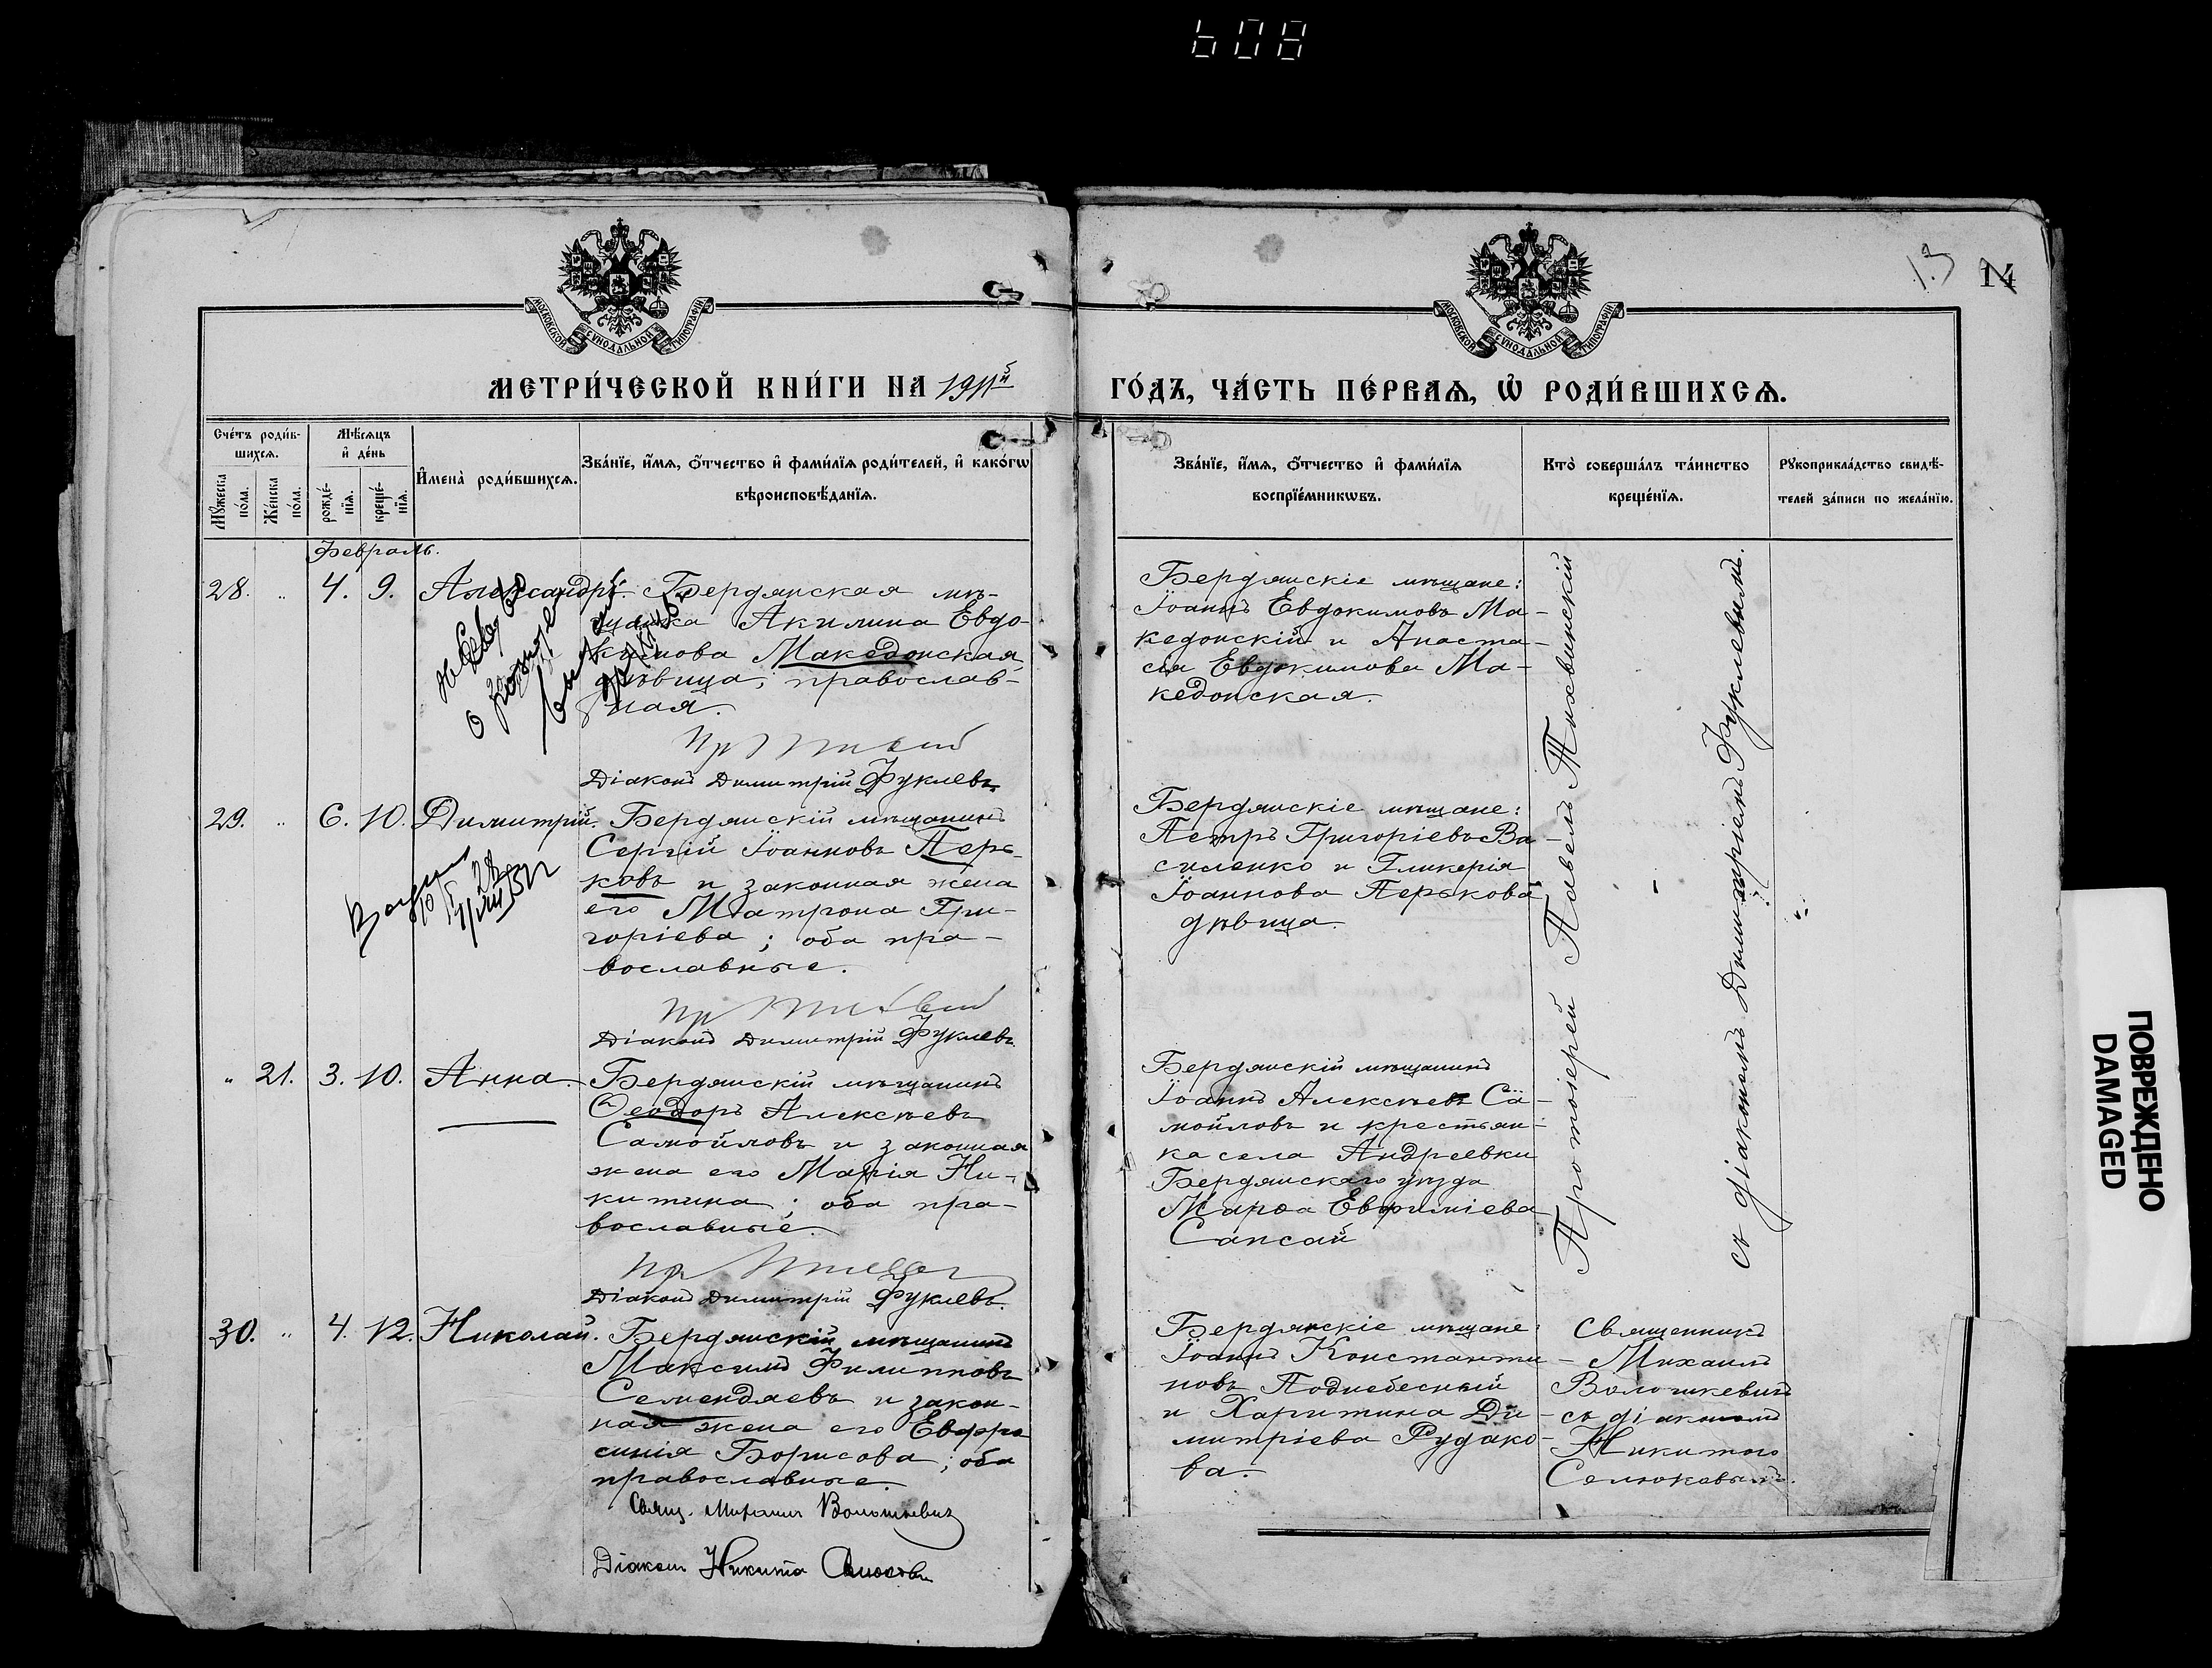 608
13
14
МОСКОВСКОЙ СѴНОДАЛЬНОЙ ТИПОГРАФІИ
МОСКОВСКОЙ СѴНОДАЛЬНОЙ ТИПОГРАФІИ
МЕТРИ́ЧЕСКОЙ КНИ́ГИ НА 1911й
ГО́ДЪ, ЧА́СТЬ ПЕ́РВАѦ, Ѽ РОДИ́ВШИХСѦ.
Сче́тъ роди́в-
шихсѧ.
Мꙋ́жеска по́ла.
Же́нска по́ла.
Мѣ́сѧцъ
и҆ де́нь
рожде́-
нїѧ.
креще́-
нїѧ.
И҆мена̀ роди́вшихсѧ.
Зва́нїе, и҆́мѧ, ѻ҆́тчество и҆ фами́лїѧ роди́телей, и҆ како́гѡ
вѣроисповѣ́данїѧ.
Зва́нїе, и҆́мѧ, ѻ҆́тчество и҆ фами́лїѧ
воспрїе́мникѡвъ.
Кто̀ соверша́лъ та́инство
креще́нїѧ.
Рꙋкоприкла́дство свидѣ́-
телей за́писи по жела́нїю.
Февраль.
28. „ 4. 9. Александръ.
Бердянская мѣ-
щанка Акилина Евдо-
кимова Македонская,
дѣвица, православ-
ная.
Діаконъ Димитрій Фуклевъ
Бердянскіе мѣщане:
Іоаннъ Евдокимовъ Ма-
кедонскій и Анаста-
сія Евдокимова Ма-
кедонская.
29. „ 6. 10. Димитрій.
Бердянскій мѣщанинъ
Сергій Іоанновъ Перь-
ковъ и законная жена
его Матрона Гри-
горіева; оба пра-
вославные.
Діаконъ Димитрій Фуклевъ
Бердянскіе мѣщане:
Петръ Григоріевъ Ва-
силенко и Гликерія
Іоаннова Перькова
дѣвица.
„ 21. 3. 10. Анна.
Бердянскій мѣщанинъ
Ѳеодоръ Алексѣевъ
Самойловъ и законная
жена его Марія Ни-
китина; оба пра-
вославные.
Діаконъ Димитрій Фуклевъ.
Бердянскій мѣщанинъ
Іоаннъ Алексѣевъ Са-
мойловъ и крестьян-
ка села Андреевки
Бердянскаго уѣзда
Марѳа Евфиміева
Сапсай
Протоіерей Павелъ Тихвинскій
съ діакономъ Димитріемъ Фуклевымъ.
30. „ 4. 12. Николай.
Бердянскій мѣщанинъ
Максимъ Филипповъ
Семендяевъ и закон-
ная жена его Евфро
синія Борисова; оба
православные.
Свящ. Михаилъ Волошкевичъ
Діаконъ Никита
Бердянскіе мѣщане:
Іоаннъ Константи-
новъ Поднебесный
и Харитина Ди-
митріева Рудако-
ва.
Священникъ
Михаилъ
Волошкевичъ
съ діакономъ
Никитою
Селюковымъ.
ПОВРЕЖДЕНО
DAMAGED